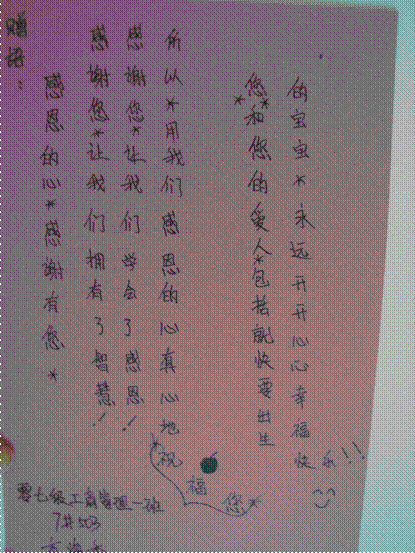 赠语：
感恩的心*感谢有您*
感谢您*让我们拥有了智慧！
感谢您*让我们学会了感恩！
所以*用我们感恩的心真心地
*祝福您*
您**和您的爱人*包括就快要出生
的宝宝*永远开开心心幸福快乐!!
零七级工商管理一班
7#503